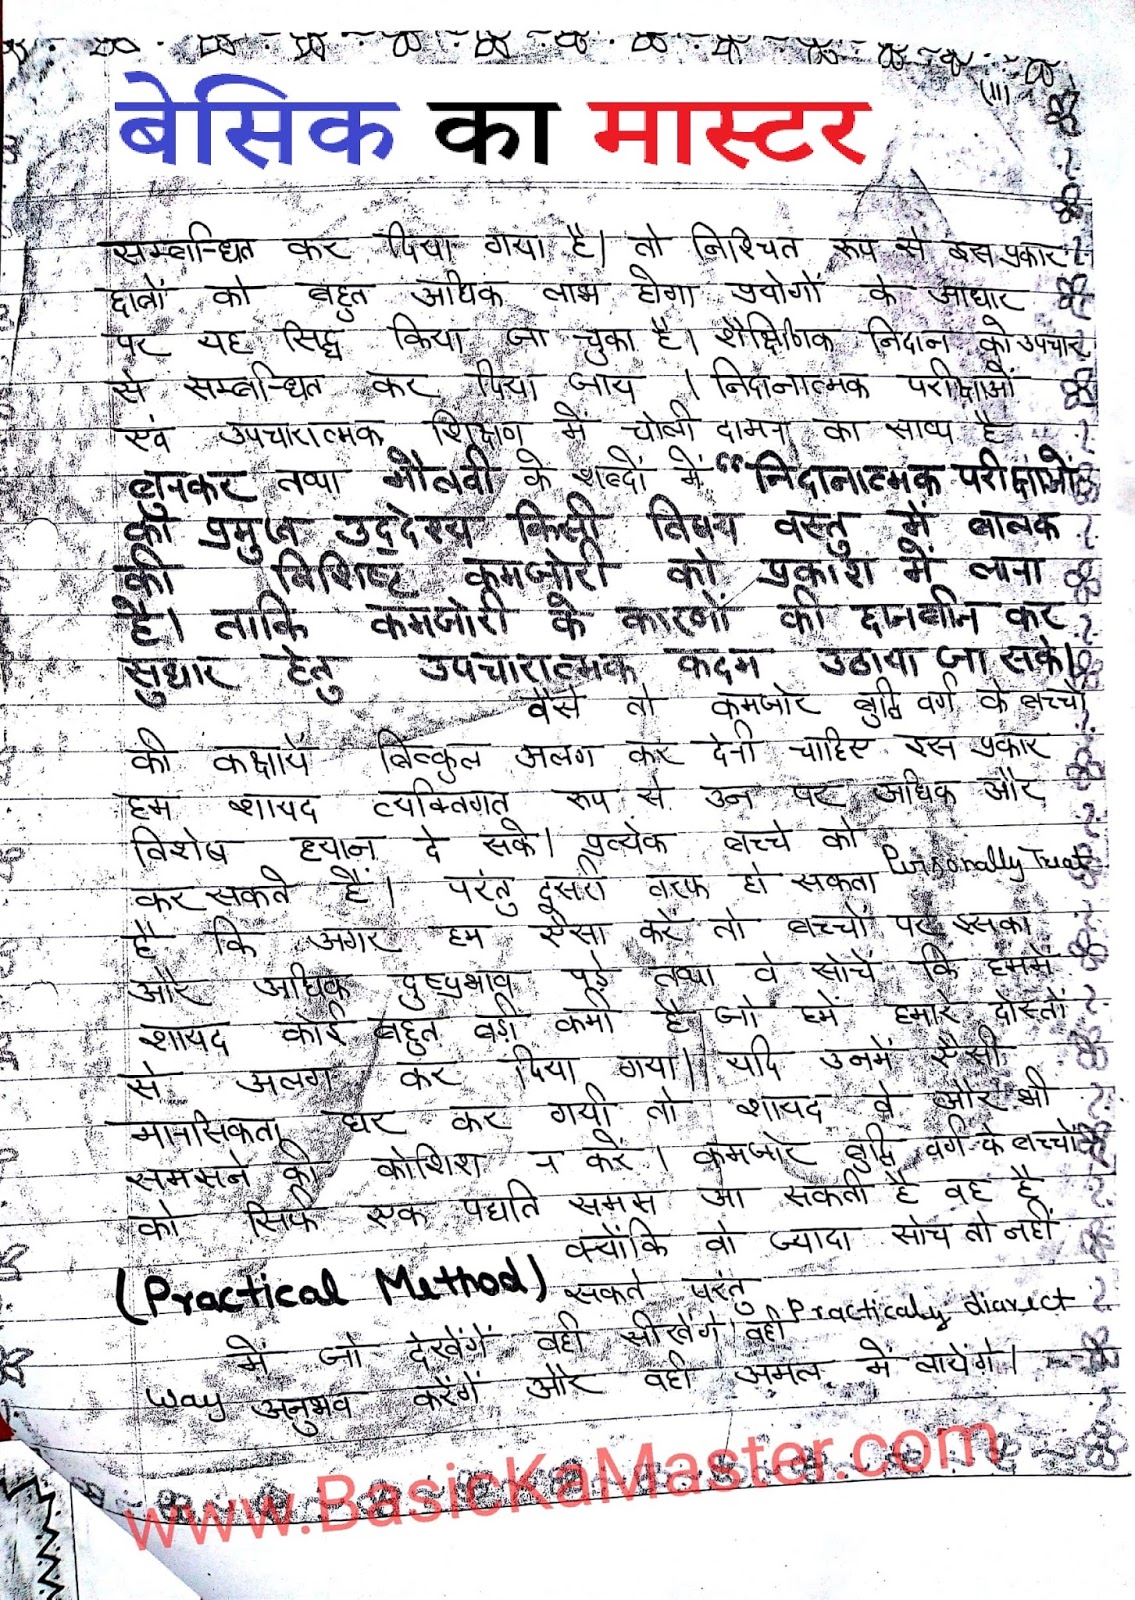 (11)
बेसिक का मास्टर
सम्बन्धित कर दिया गया है। तो निश्चित रूप से इस प्रकार
छात्रों को बहुत अधिक लाभ होगा प्रयोगों के आधार
पर यह सिद्ध किया जा चुका है। शैक्षिणिक निदान को उपचार
से सम्बन्धित कर दिया जाय । निदानात्मक परीक्षाओं
एवं उपचारात्मक शिक्षण में चोली दामन का साथ है
बुनकर तथा मौलवी के शब्दों में "निदानात्मक परीक्षाओं
का प्रमुख उद्देश्य किसी विषय वस्तु में बालक
की विशिष्ट कमजोरी को प्रकाश में लाना
है। ताकि कमजोरी के कारणों की छानबीन कर
सुधार हेतु उपचारात्मक कदम उठाया जा सके।
वैसे तो कमजोर बुद्धि वर्ग के बच्चों
की कक्षायें बिल्कुल अलग कर देनी चाहिए इस प्रकार
हम शायद व्यक्तिगत रूप से उन पर अधिक और
विशेष ध्यान दे सके। प्रत्येक बच्चे को Pursonally Treat
कर सकते हैं। परंतु दूसरी तरफ हो सकता
है कि अगर हम ऐसा करें तो बच्चों पर इसका
और अधिक दुष्प्रभाव पड़े तथा वे सोचें कि हममें
शायद कोई बहुत बड़ी कमी है जो हमें हमारे दोस्तों
से अलग कर दिया गया। यदि उनमें ऐसी
मानसिकता घर कर गयी तो शायद वे और भी
समझने की कोशिश न करें। कमजोर बुद्धि वर्ग के बच्चों
को सिर्फ एक पद्यति समझ आ सकती है वह है
(Practical Method) क्योंकि वो ज्यादा सोच तो नहीं
सकते परंतु Practicaly diarect
में जो देखेंगें वही सीखेंगे। वही
way अनुभव करेंगें और वही अमल में लायेंगे।
www.BasicKaMaster.com